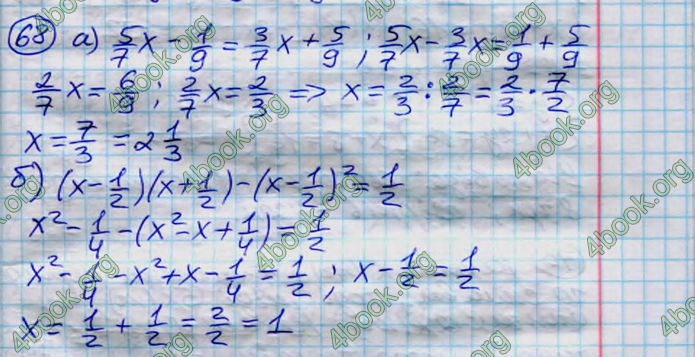 68 а) 5/7 x - 1/9 = 3/7 x + 5/9 ; 5/7 x - 3/7 x = 1/9 + 5/9
2/7 x = 6/9 ; 2/7 x = 2/3 => x = 2/3 : 2/7 = 2/3 · 7/2
x = 7/3 = 2 1/3
б) (x - 1/2)(x + 1/2) - (x - 1/2)² = 1/2
x² - 1/4 - (x² - x + 1/4) = 1/2
x² - 1/4 - x² + x - 1/4 = 1/2 ; x - 1/2 = 1/2
x = 1/2 + 1/2 = 2/2 = 1
4book.org
4book.org
4book.org
4book.org
4book.org
4book.org
4book.org
4book.org